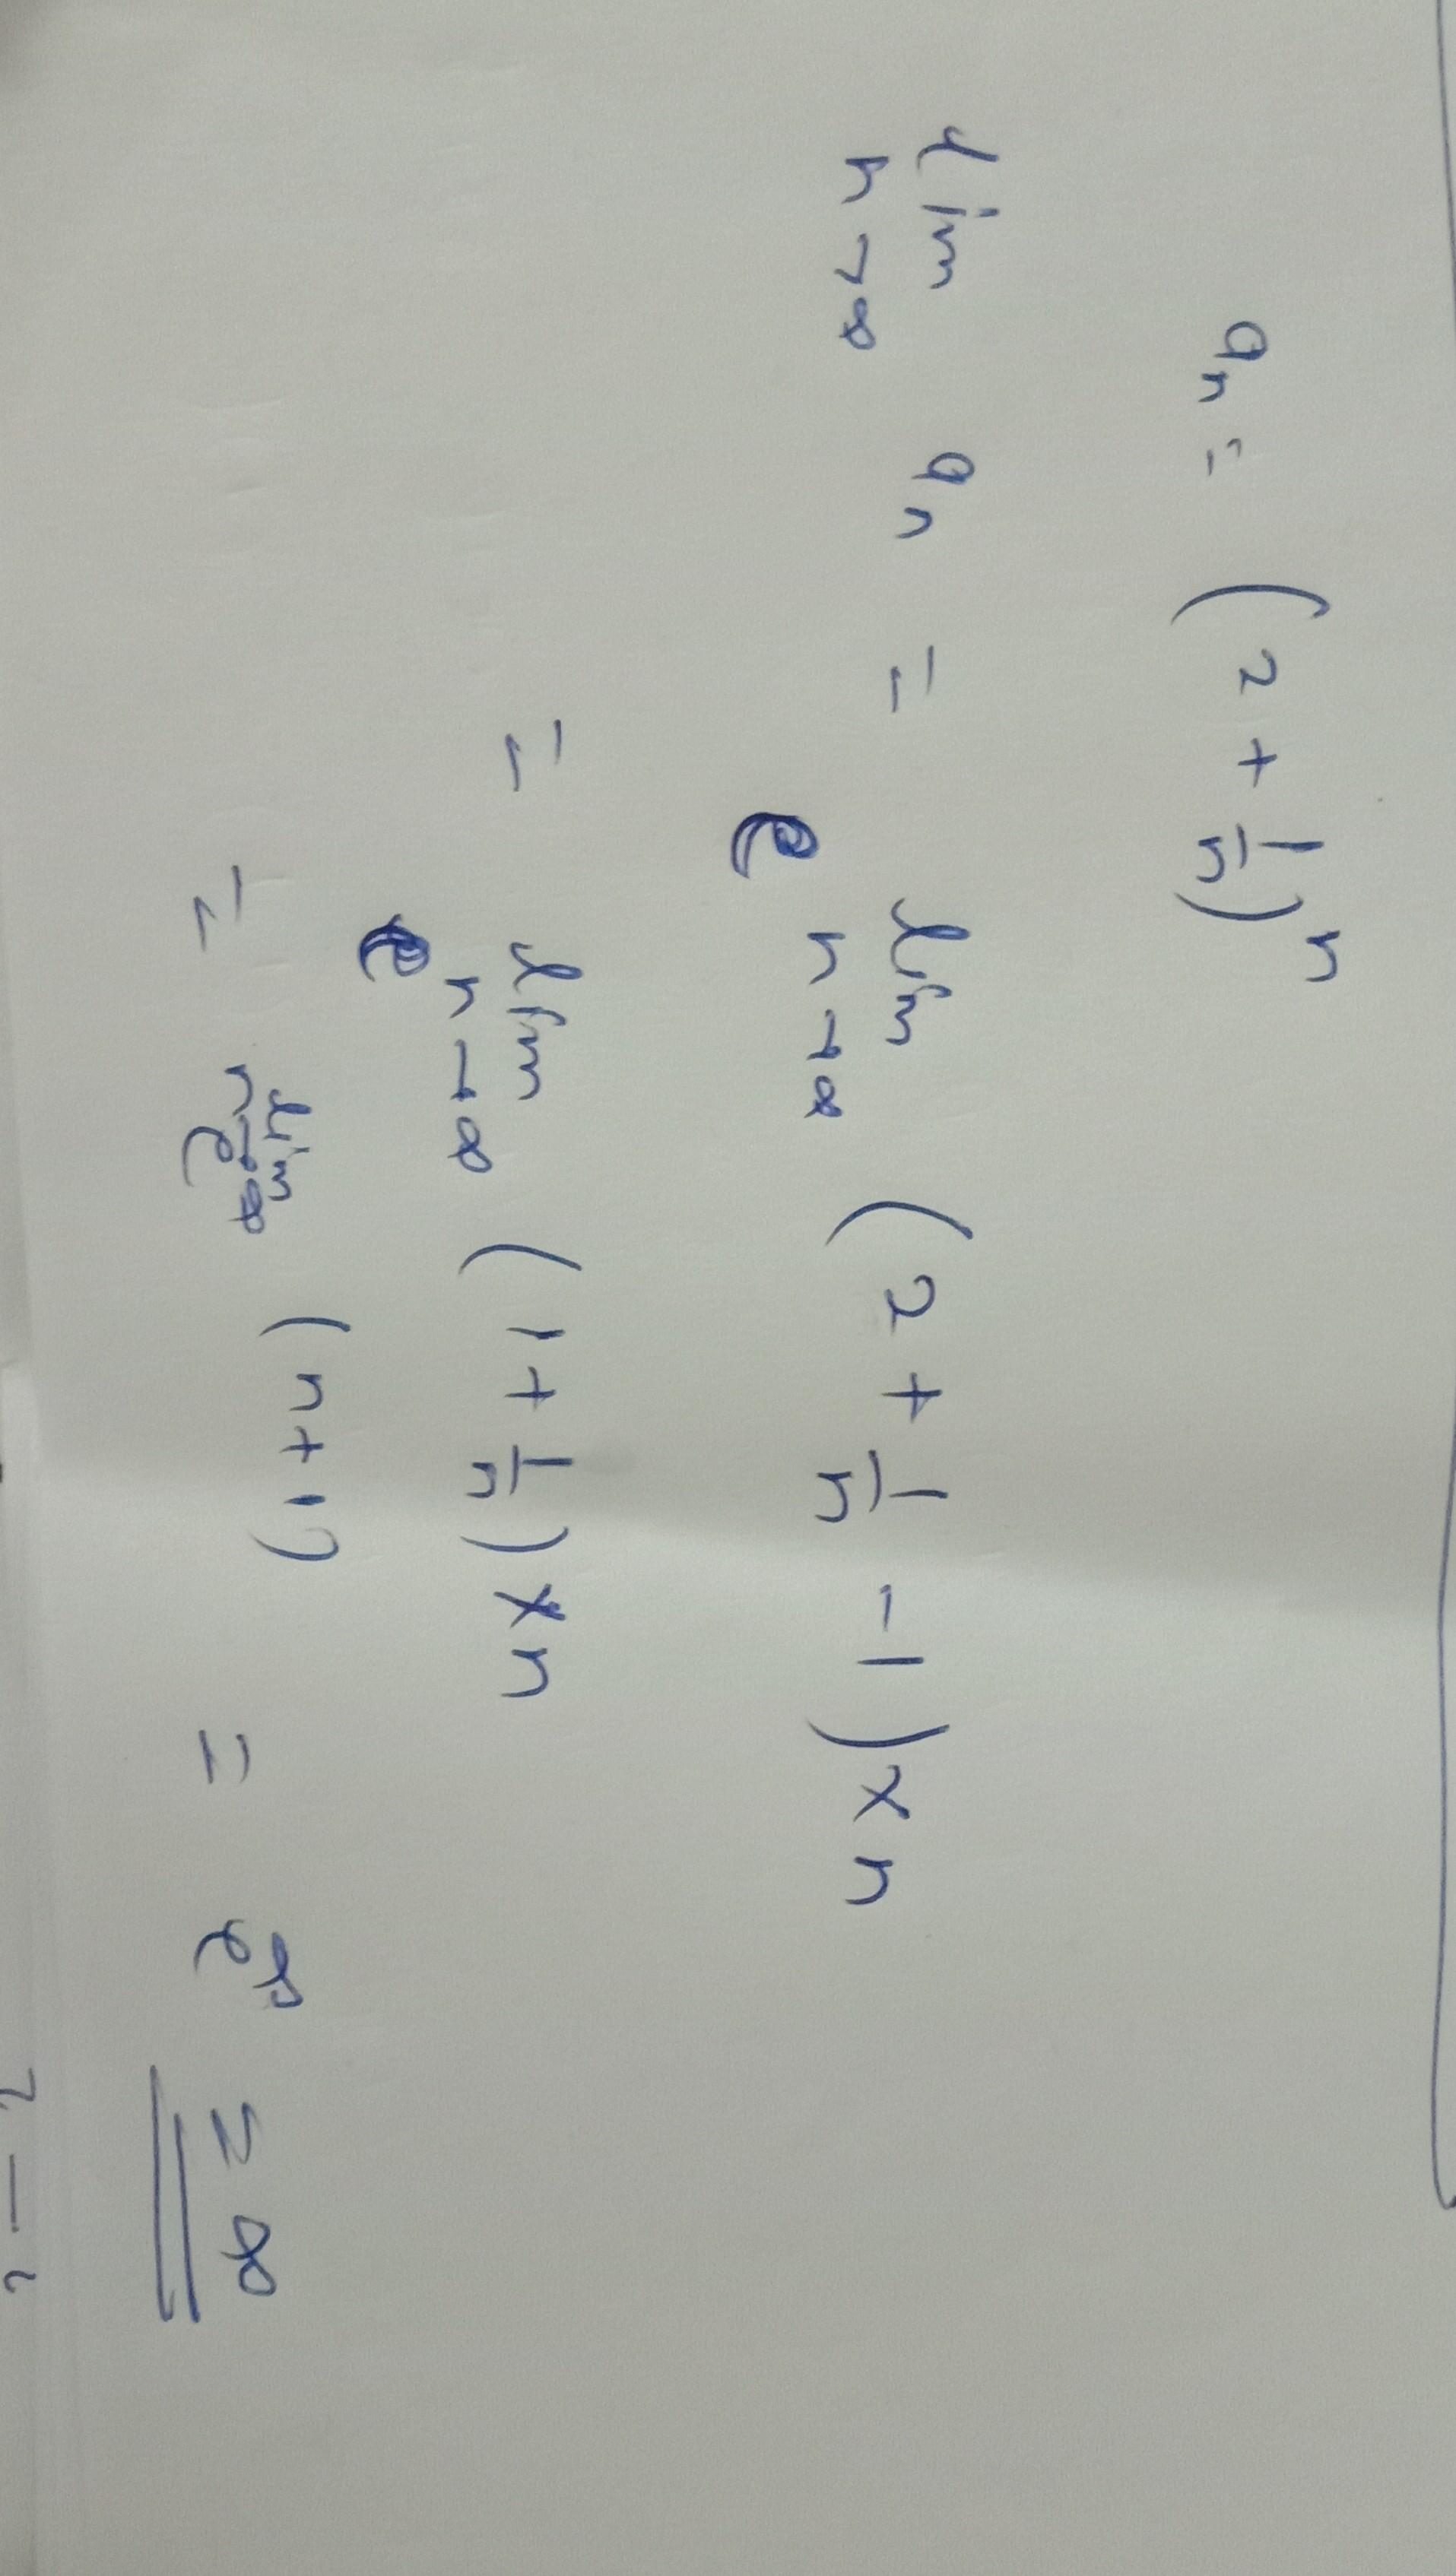 aₙ = (2 + 1/n)ⁿ
lim n→∞ aₙ = e^{lim n→∞ (2 + 1/n - 1) × n}
= e^{lim n→∞ (1 + 1/n) × n}
= e^{lim n→∞ (n + 1)} = e^∞ = ∞